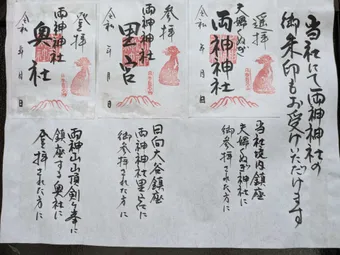 当社にて両神神社の
御朱印もお受けいただけます
遥拝
天郷くぬぎ
両神神社
令和 年 月 日
当社境内鎮座
天郷くぬぎ神社に
御参拝された方に
参拝
両神神社
里宮
令和 年 月 日
日向大谷鎮座
両神神社里宮に
御参拝された方に
登拝
両神神社
奥社
令和 年 月 日
両神山山頂剣ヶ峯に
鎮座する奥社に
登拝された方に